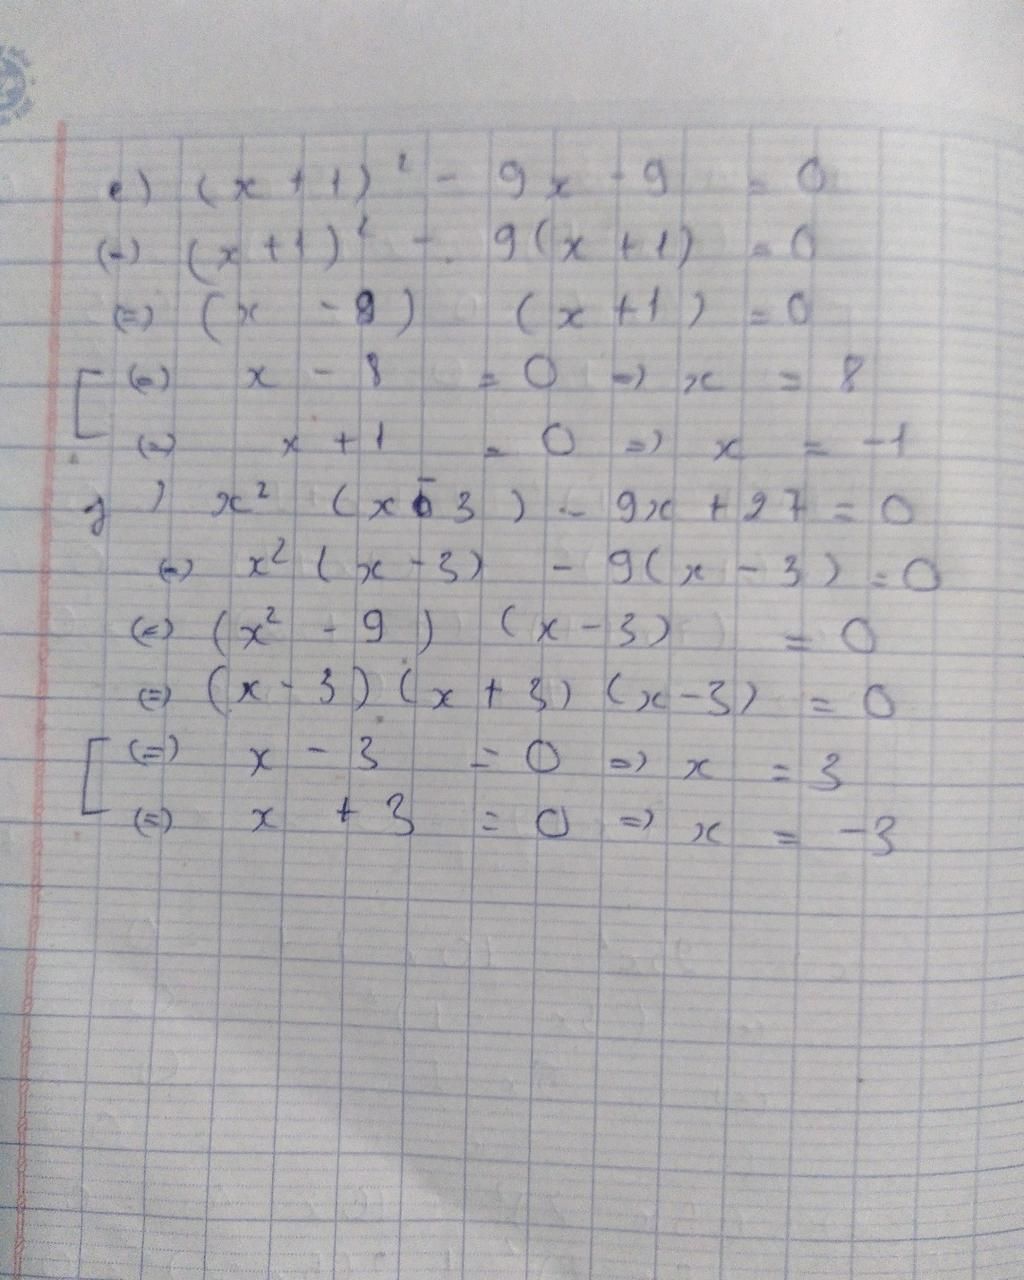 e) (x + 1)² - 9x - 9 = 0
(=) (x + 1)² - 9(x + 1) = 0
(=) (x - 8) (x + 1) = 0
[ (=) x - 8 = 0 => x = 8
(=) x + 1 = 0 => x = -1
g) x² (x - 3) - 9x + 27 = 0
(=) x² (x - 3) - 9(x - 3) = 0
(=) (x² - 9) (x - 3) = 0
(=) (x - 3) (x + 3) (x - 3) = 0
[ (=) x - 3 = 0 => x = 3
(=) x + 3 = 0 => x = -3